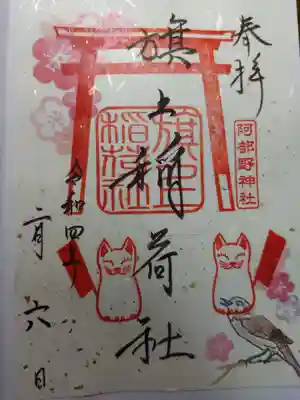 奉拝
阿部野神社
旗上稲荷社
旗上稲荷社
令和四年
二月六日